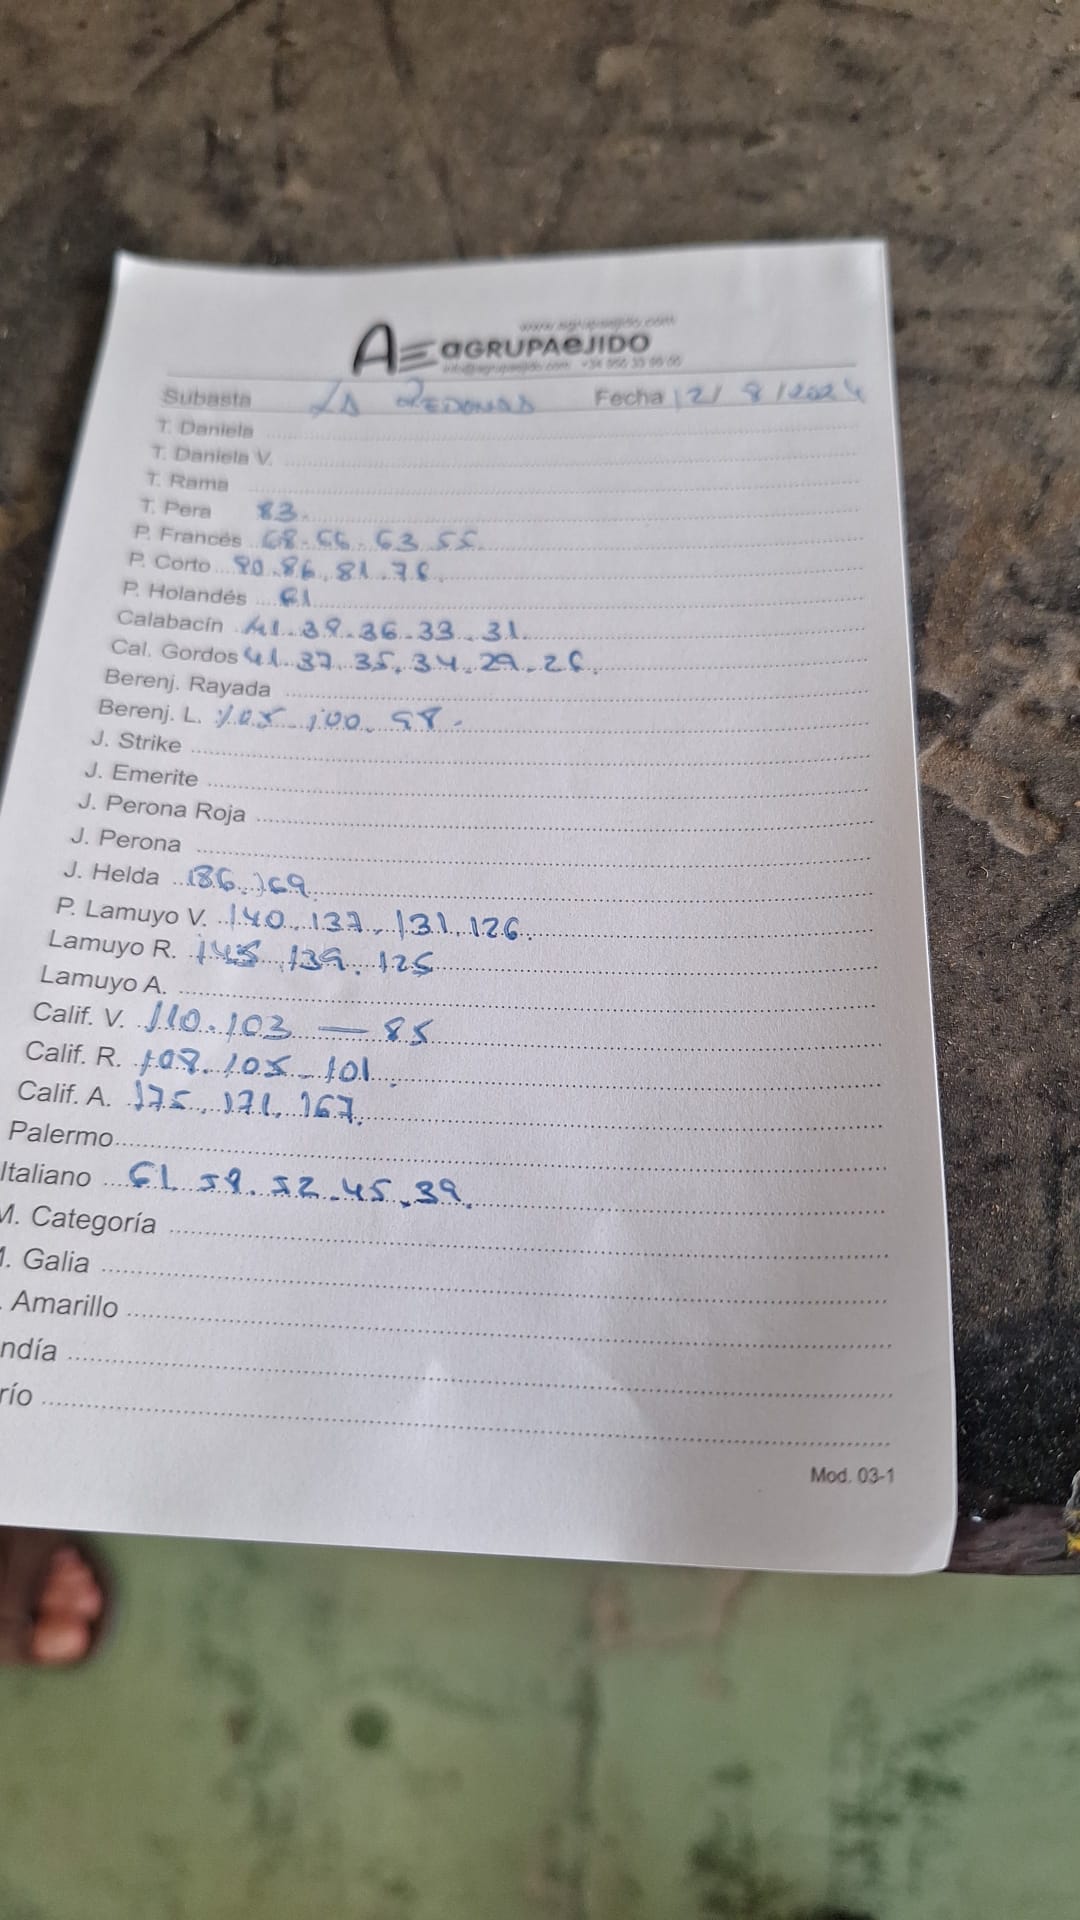 www.agrupaejido.com
AE aGRUPAeJIDO
info@agrupaejido.com +34 950
Subasta LA REDONDA Fecha 12/ 8/2024
T. Daniela
T. Daniela V.
T. Rama
T. Pera 83.
P. Francés 68. 66. 63. 55.
P. Corto 90. 86. 81. 76.
P. Holandés 61
Calabacín 41. 39. 36. 33. 31.
Cal. Gordos 41. 37. 35. 34. 29. 26.
Berenj. Rayada
Berenj. L. 105. 100. 98.
J. Strike
J. Emerite
J. Perona Roja
J. Perona
J. Helda 186. 169.
P. Lamuyo V. 140. 137. 131. 126.
Lamuyo R. 145. 139. 125
Lamuyo A.
Calif. V. 110. 103 — 85
Calif. R. 108. 105. 101.
Calif. A. 175. 171. 167.
Palermo
Italiano 61. 59. 52. 45. 39.
M. Categoría
. Galia
. Amarillo
ndía
río
Mod. 03-1